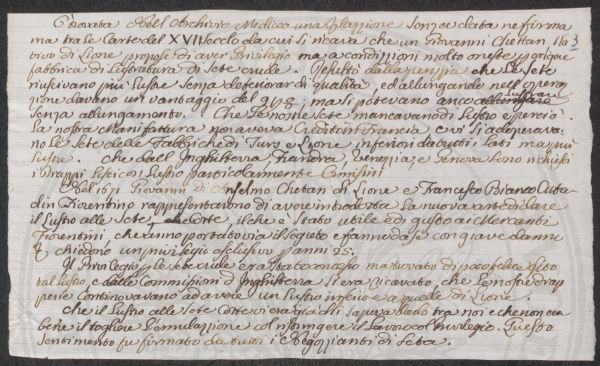 Trovata nell Archivio Mediceo una Relazione senza data ne firma
ma tra le Carte del XVII secolo da cui si ricava che un Giovanni Chetan Na 3
tivo di Lione propose di aver Privilegio ma a condizioni molto oneste p erigere
fabbrica di Lustratura di Sete crude. Resultò dalla perizia che le Sete
riuscivano più Lustre senza deteriorar di qualità, ed allungando nell opera
zione davano un vantaggio del 2 1/2 p %, ma si potevano anco lustrare
senza allungamento. Che le nostre sete mancavano di Lustro e perciò
la nostra Manifattura non aveva Credito in Francia e vi si adoperava
no le Sete delle Fabbriche di Turs e Lione inferiori da tutti i lati ma più
Lustre. che dall Inghilterra Fiandra, Venezia, e Genova sono richiesti
i Drappi lisci con Lustro particolarmente Ermisini
Nel 1671 Giovanni di Anselmo Chetan di Lione e Francesco Bianco Citta
din Fiorentino rappresentarono di avere introdotta la nuova arte di dare
il Lustro alle Sete Corte, il che è stato utile e di gusto ai Mercanti
Fiorentini, che anno portato via il segreto e fanno da se con grave danno
e chiedono un privilegio esclusivo p anni 25.
Il Privilegio p le sete crude era stato concesso ma trovato di poco felice esito
tal Lustro, e dalle Commissioni d Inghilterra si era ricavato, che le nostre drap
perie continovavano ad avere un Lustro inferiore a quelle di Lione.
che il Lustro alle Sete Corte vi era già chi sapeva darlo tra noi e che non era
bene il togliere l'emulazione col ristringere il lavoro col Privilegio. Questo
sentimento fu firmato da tutti i Negozianti di seta.